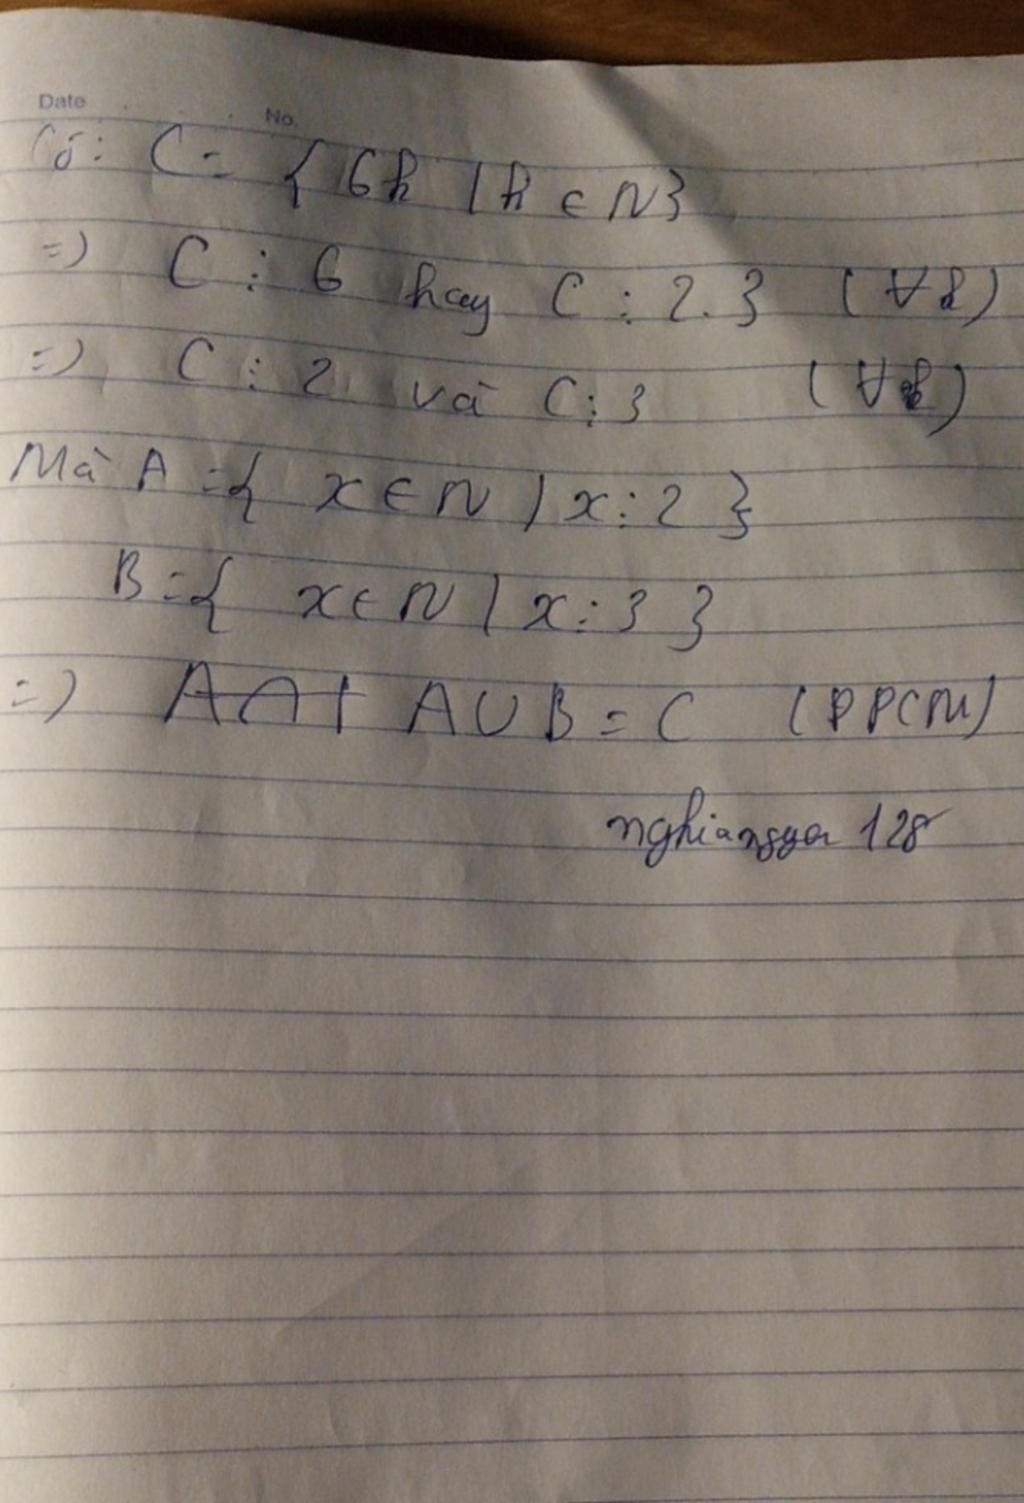 Date
No.
Có: C = { 6k | k ∈ N}
=) C ⋮ 6 hay C ⋮ 2.3 (∀k)
=) C ⋮ 2 và C ⋮ 3 (∀k)
Mà A = { x ∈ N | x ⋮ 2 }
B = { x ∈ N | x ⋮ 3 }
=) A ∪ B = C (ĐPCM)
128